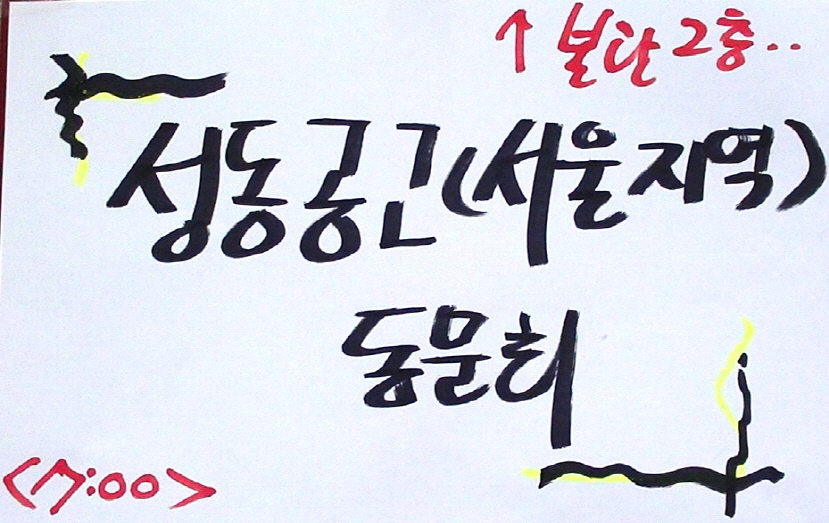 ↑ 불난 2층..
성동공고(서울지역)
동문회
<7:00>